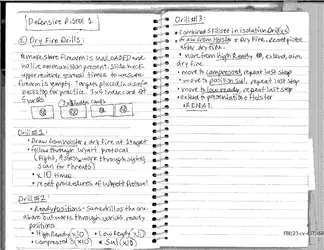 Defensive Pistol 1
Dry Fire Drills:
* make sure firearm is UNLOADED and
no live ammunition present. Slide rack
upper receiver several times to ensure
firearm is empty. Targets placed in safe
direction for practice. 3x5 index card at
5 yards
3x5 Index Cards
Drill #1:
• Draw from holster & dry fire at 1 target
• follow through Wyatt protocol
(Fight, Assess, work through sights,
scan for threats)
• x 10 times
• reset procedures of Wyatt Protocol
Drill #2
• Ready positions - same drill as the one
above but works through various ready
positions.
• High Ready (x10) • Low Ready (x10)
• compressed (x10) * Sul (x10)
Drill #3:
• Combined skillset in isolation Drill(s)
• Draw from Holster & Dry Fire. Reset pistol
after dry fire.
• start from High Ready, extend, aim
dry fire
• move to compressed, repeat last step
• move to position Sul, repeat last step
• move to low ready, repeat last step
• extend to presentation & Holster
• REPEAT.